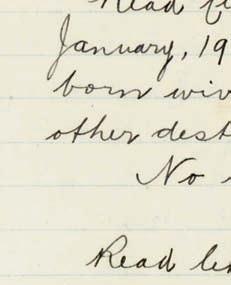 Read
January, 19
born
other dest
No
Read le